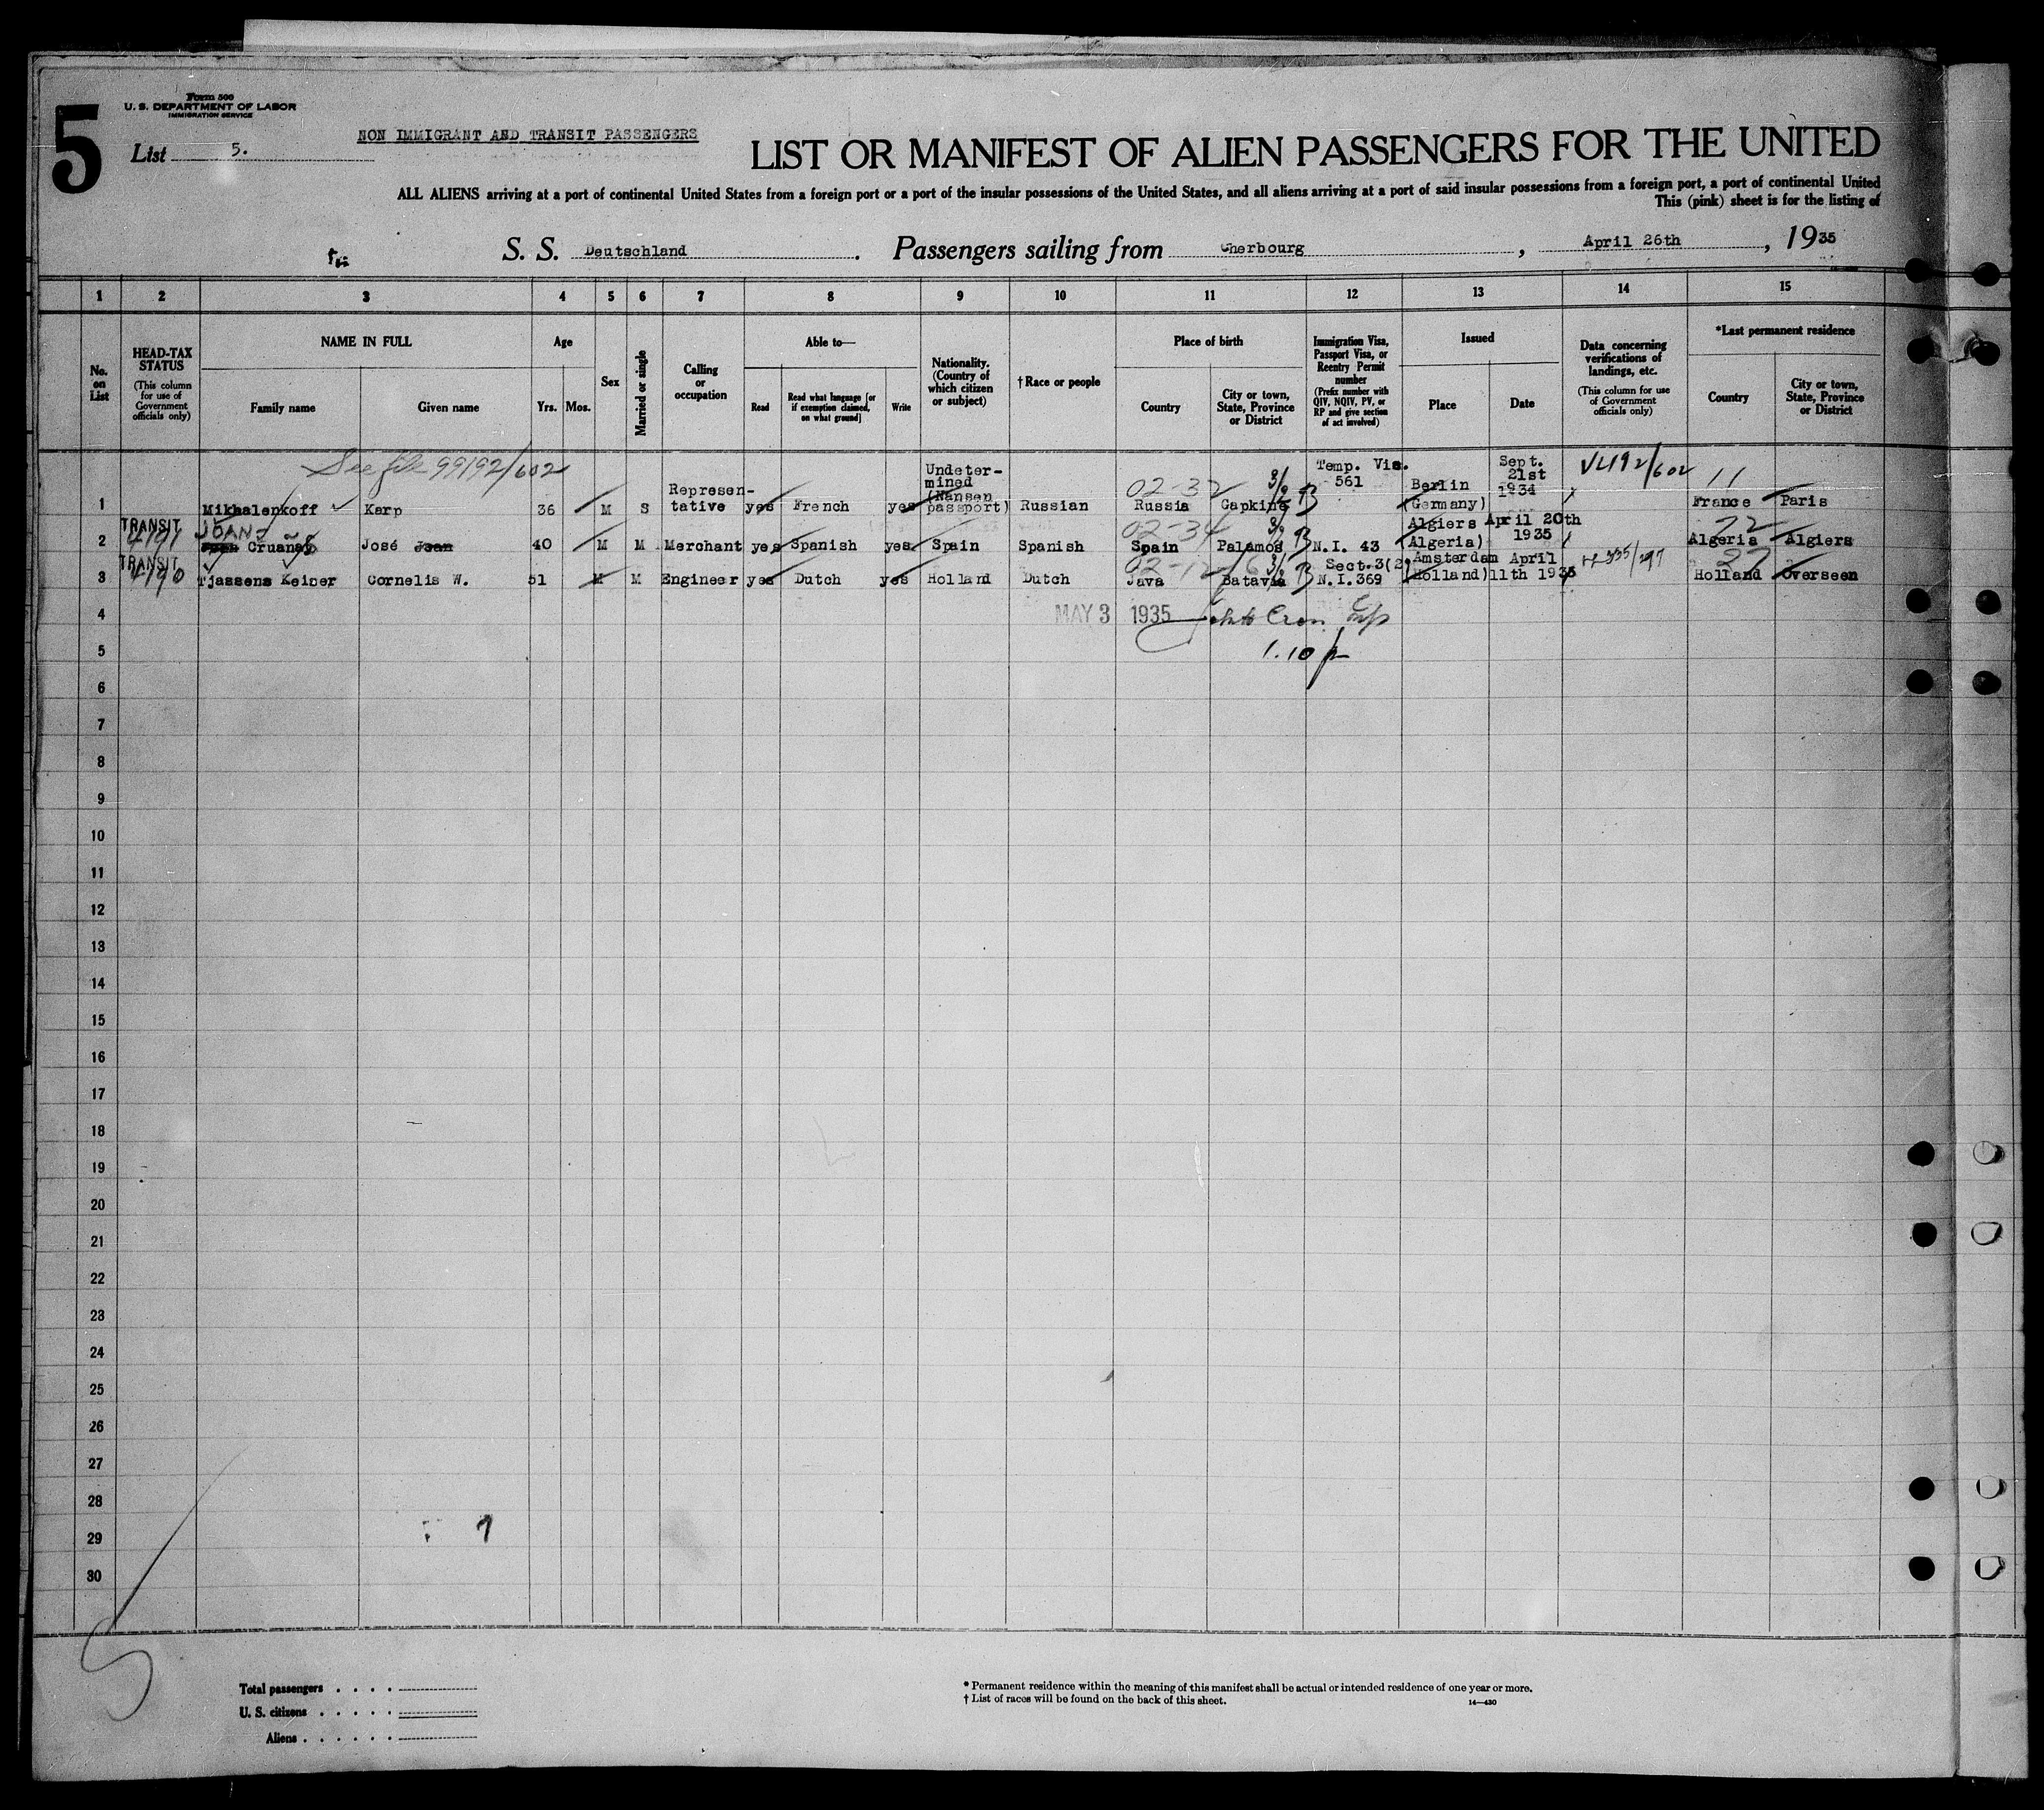 5
Form 500
U. S. DEPARTMENT OF LABOR
IMMIGRATION SERVICE
List 5.
NON IMMIGRANT AND TRANSIT PASSENGERS
LIST OR MANIFEST OF ALIEN PASSENGERS FOR THE UNITED
ALL ALIENS arriving at a port of continental United States from a foreign port or a port of the insular possessions of the United States, and all aliens arriving at a port of said insular possessions from a foreign port, a port of continental United
This (pink) sheet is for the listing of
S. S. Deutschland. Passengers sailing from Cherbourg, April 26th, 1935
1 2 3 4 5 6 7 8 9 10 11 12 13 14 15
No. on List
HEAD-TAX STATUS
(This column for use of Government officials only)
NAME IN FULL
Family name
Given name
Age
Yrs. Mos.
Sex
Married or single
Calling or occupation
Able to—
Read
Read what language [or if exemption claimed, on what ground]
Write
Nationality. (Country of which citizen or subject)
†Race or people
Place of birth
Country
City or town, State, Province or District
Immigration Visa, Passport Visa, or Reentry Permit number
(Prefix number with QIV, NQIV, PV, or RP and give section of act involved)
Issued
Place
Date
Data concerning verifications of landings, etc.
(This column for use of Government officials only)
*Last permanent residence
Country
City or town, State, Province or District
See file 99192/602
1 Mikhalenkoff Karp 36 M S Represen-tative yes French yes Undeter-mined (Nansen passport) Russian 02-32 Russia Gapkino Temp. Vis. 561 Berlin (Germany) Sept. 21st 1934 11 France Paris
TRANSIT 4191
2 JOAN Cruañas José Joan 40 M M Merchant yes Spanish yes Spain Spanish 02-34 Spain Palamos N.I. 43 Algiers (Algeria) April 20th 1935 72 Algeria Algiers
TRANSIT 4190
3 Tjassens Keiser Cornelis W. 51 M M Engineer yes Dutch yes Holland Dutch Java Batavia Sect.3(2) N.I.369 Amsterdam (Holland) April 11th 1935 27 Holland Overseen
4 MAY 3 1935
5 1.10
6
7
8
9
10
11
12
13
14
15
16
17
18
19
20
21
22
23
24
25
26
27
28
29
30
Total passengers . . . .
U. S. citizens . . . . .
Aliens . . . . . .
* Permanent residence within the meaning of this manifest shall be actual or intended residence of one year or more.
† List of races will be found on the back of this sheet.
14—430